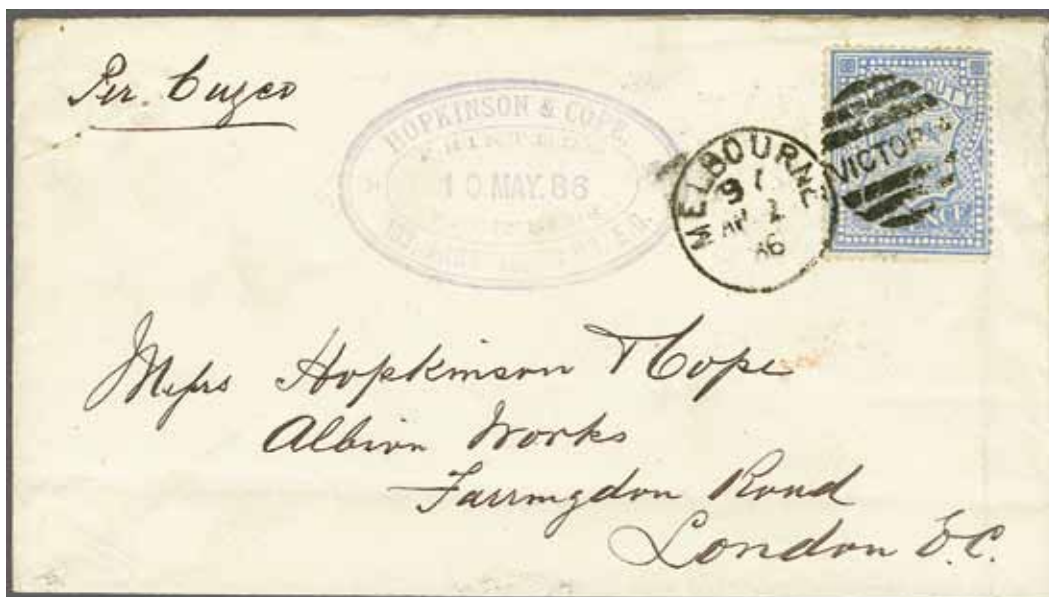 Per. Cuzco
HOPKINSON & COPE
10 MAY. 86
MELBOURNE
9 1
AP 2
86
VICTORIA
DUTY
Messrs Hopkinson & Cope
Albion Works
Farringdon Road
London E.C.